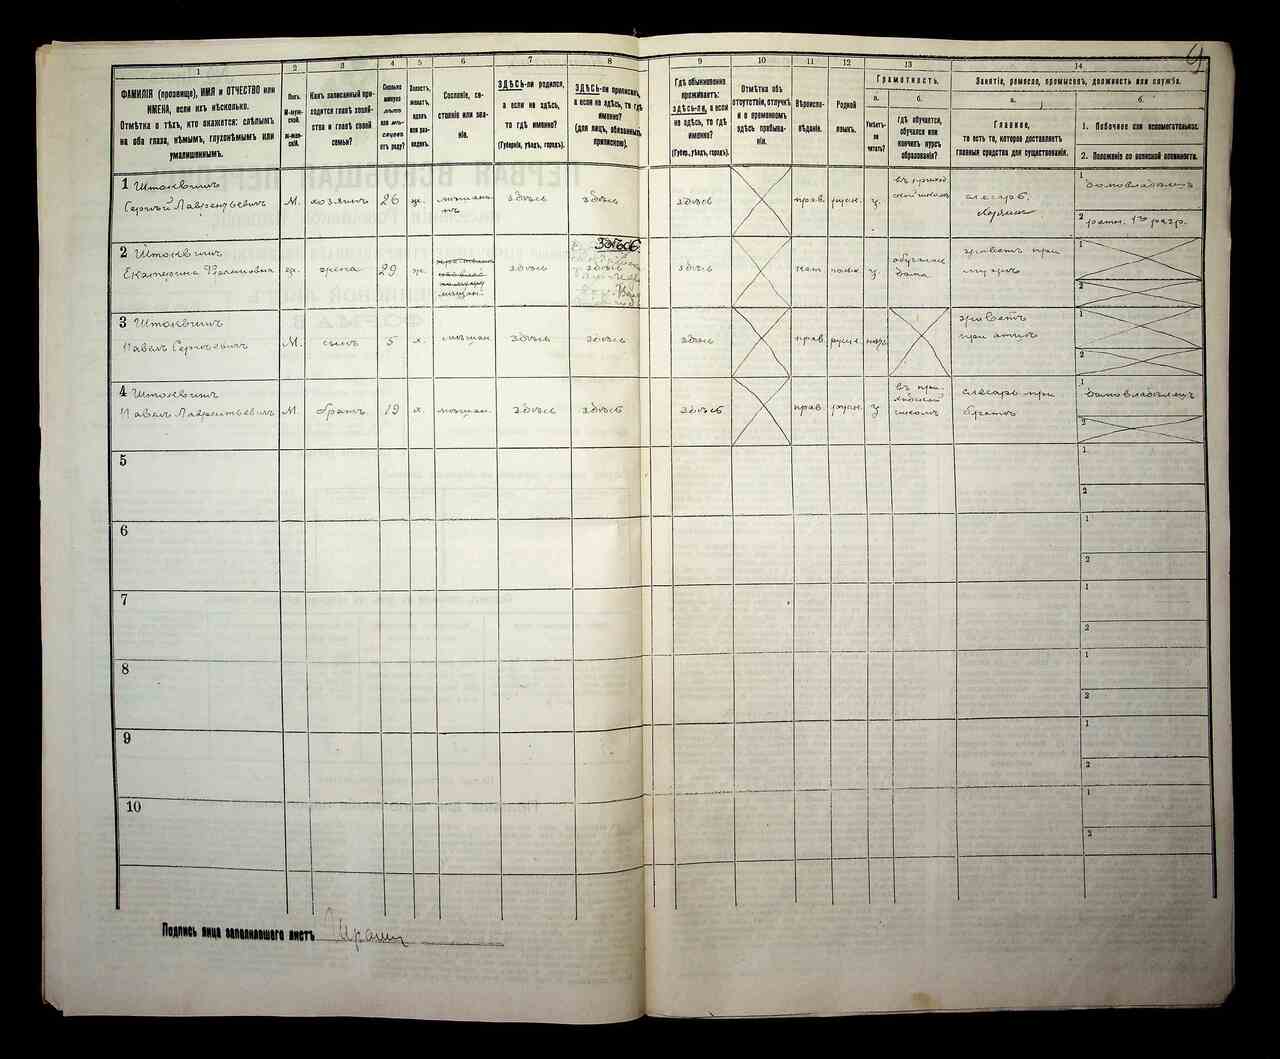 9
1
2
3
4
5
6
7
8
9
10
11
12
13
14
ФАМИЛІЯ (прозвище), ИМЯ и ОТЧЕСТВО или
ИМЕНА, если ихъ нѣсколько.
Отмѣтка о тѣхъ, кто окажется: слѣпымъ
на оба глаза, нѣмымъ, глухонѣмымъ или
умалишеннымъ.
Полъ.
М-муж-
ской.
Ж-жен-
скій.
Какъ записанный при-
ходится главѣ хозяй-
ства и главѣ своей
семьи?
Сколько
минуло
лѣтъ
или мѣ-
сяцевъ
отъ роду?
Холостъ,
женатъ,
вдовъ
или раз-
веденъ.
Сословіе, со-
стояніе или зва-
ніе.
ЗДѢСЬ-ли родился,
а если не здѣсь,
то гдѣ именно?
(Губернія, уѣздъ, городъ).
ЗДѢСЬ-ли приписанъ,
а если не здѣсь, то гдѣ
именно?
(для лицъ, обязанныхъ
припискою).
Гдѣ обыкновенно
проживаетъ:
ЗДѢСЬ-ли, а если
не здѣсь, то гдѣ
именно?
(Губер., уѣздъ, городъ).
Отмѣтка объ
отсутствіи, отлучкѣ
и о временномъ
здѣсь пребыва-
ніи.
Вѣроиспо-
вѣданіе.
Родной
языкъ.
Грамотность.
а.
Умѣетъ-
ли
читать?
б.
гдѣ обучается,
обучался или
кончилъ курсъ
образованія?
Занятіе, ремесло, промыселъ, должность или служба.
а.
Главное,
то есть то, которое доставляетъ
главныя средства для существованія.
б.
1. Побочное или вспомогательное.
2. Положеніе по воинской повинности.
1 Штоквишъ
Сергѣй Лаврентьевичъ М. хозяинъ 26 ж. здѣсь здѣсь здѣсь прав. русс.
слесарь
1 домовладѣлецъ
2 ратн. 1го разр.
2 Штоквишъ
Екатерина ж. жена 29 ж. здѣсь здѣсь здѣсь
Здѣсь
обучалась
дома
живетъ при
мужѣ
1
2
3 Штоквишъ
Павелъ Сергѣевичъ М. сынъ 5 х. мѣщан. здѣсь здѣсь здѣсь прав. русс.
живетъ
при отцѣ
1
2
4 Штоквишъ
Павелъ Лаврентьевичъ М. братъ 19 х. мѣщан. здѣсь здѣсь здѣсь прав. русс.
слесарь при
братѣ
1 домовладѣлецъ
2
5
1
2
6
1
2
7
1
2
8
1
2
9
1
2
10
1
2
Подпись лица заполнявшаго листъ